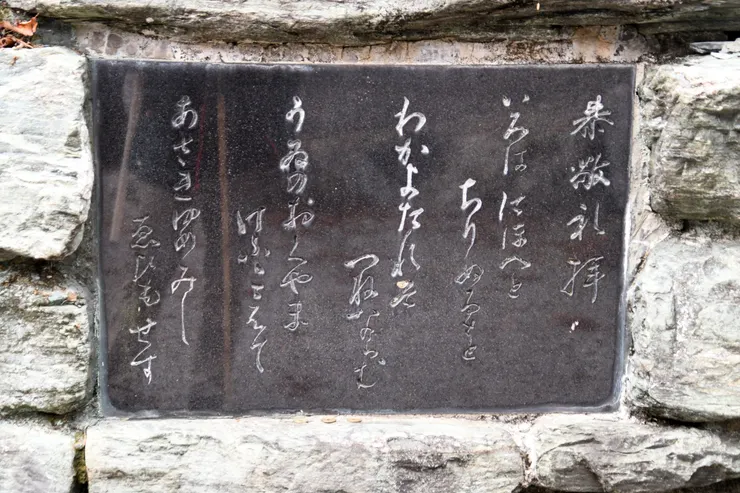 恭敬礼拝
いろは にほへと
ちりぬるを
わかよたれそ
つねならむ
うゐのおくやま
けふこえて
あさきゆめみし
ゑひもせす